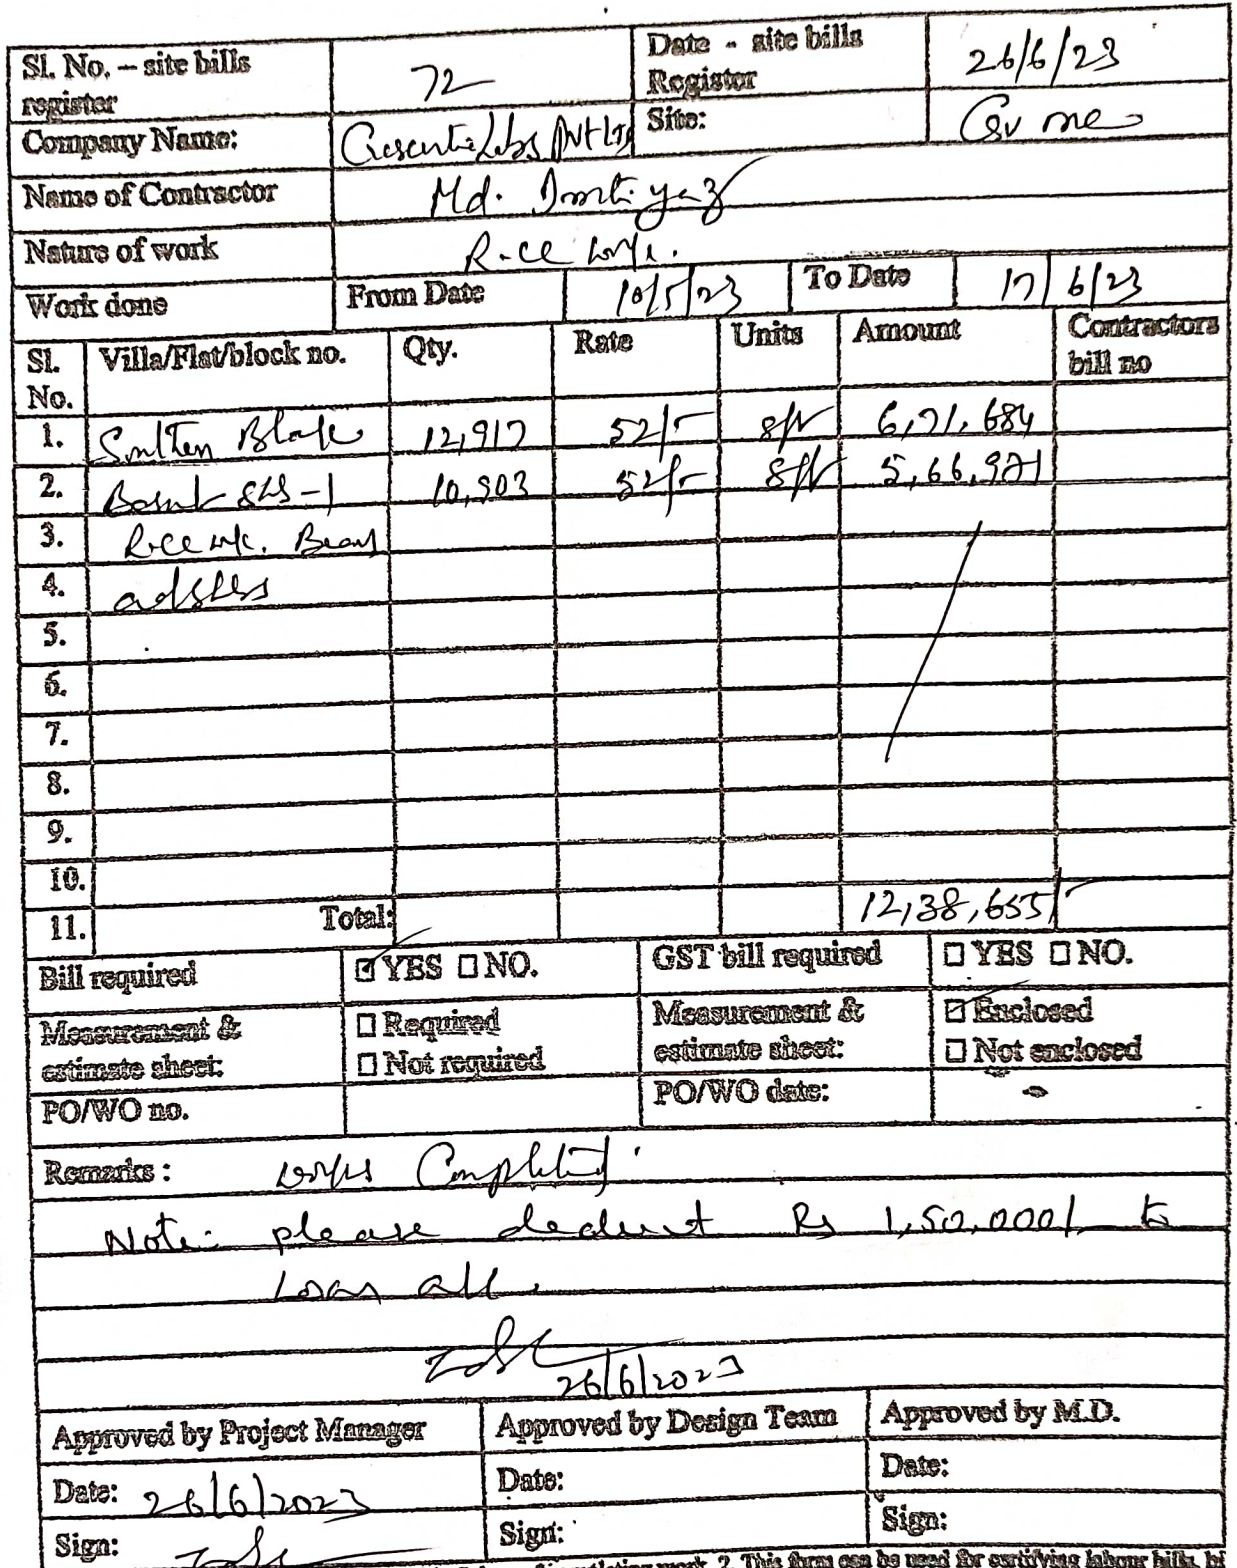 Sl. No. – site bills register 72 Date - site bills Register 26/6/23
Company Name: Pvt Ltd Site:
Name of Contractor Md. Imtiyaz
Nature of work Rcc work.
Work done From Date 10/5/23 To Date 17/6/23
Sl. No. Villa/Flat/block no. Qty. Rate Units Amount Contractors bill no
1. 12,917 52/- 6,71,684
2. 10,903 52/- 5,66,971
3. Rcc
4.
5.
6.
7.
8.
9.
10.
11. Total: 12,38,655/-
Bill required ☑ YES ☐ NO. GST bill required ☐ YES ☐ NO.
Measurement & estimate sheet: ☐ Required ☐ Not required Measurement & estimate sheet: ☑ Enclosed ☐ Not enclosed
PO/WO no. PO/WO date:
Remarks : works
Note: please deduct Rs 1,50,000/- to
Loan
26/6/2023
Approved by Project Manager Approved by Design Team Approved by M.D.
Date: 26/6/2023 Date: Date:
Sign: Sign: Sign:
work. 2. This form can be used for certifying labour bills,